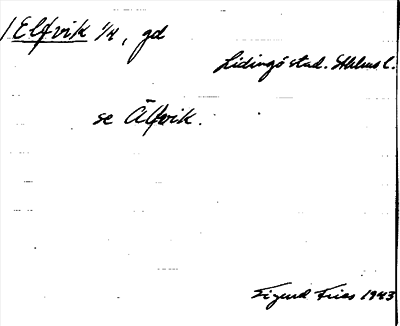 Elfvik 1/1, gd
Lidingö stad. Sthlms l.
se Älfvik.
Sigurd Fries 1943